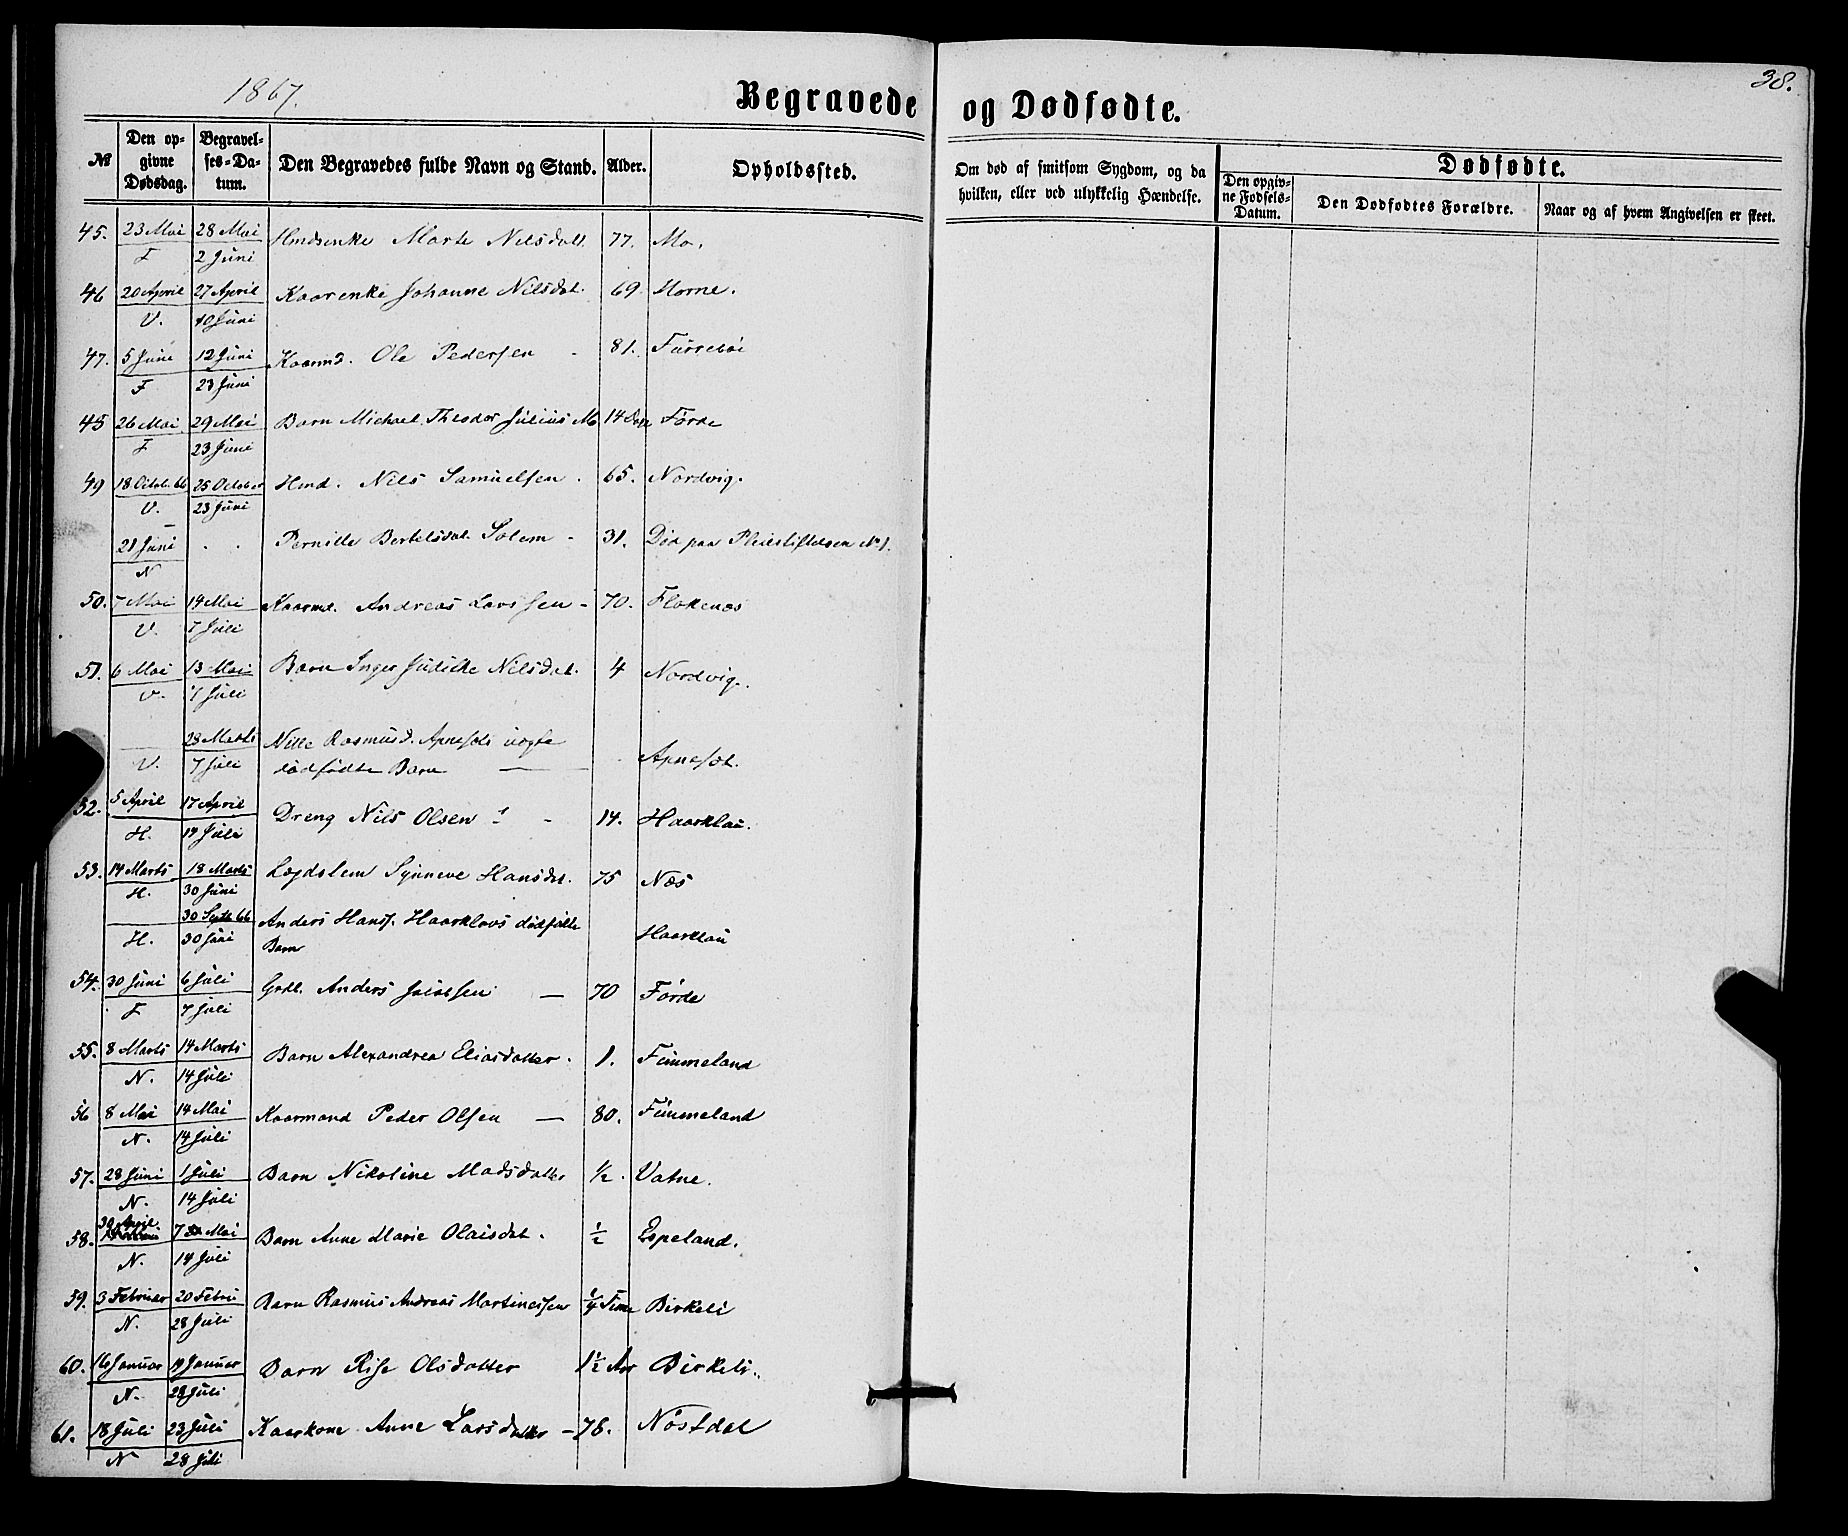 1867.
38.
Begravede og Dødfødte.
№
Den opgivne Dødsdag.
Begravelses-Datum.
Den Begravedes fulde Navn og Stand.
Alder.
Opholdssted.
Om død af smitsom Sygdom, og da hvilken, eller ved ulykkelig Hændelse.
Dødfødte.
Den opgivne Fødsels-Datum.
Den Dødfødtes Forældre.
Naar og af hvem Angivelsen er skeet.
45. 23 Mai 28 Mai Marte Nilsdatt. 77. Mo.
F 2 Juni
46 20 April 27 April Kaarenke Johanne Nilsdat. 69. Horne.
V. 10 Juni
47. 5 Juni 12 Juni Kaarmd. Ole Pedersen - 81. Furrebøi
F 23 Juni
45 26 Mai 29 Mai Barn Michael Theodor Julius M 14 Dage Førde
F 23 Juni
49 18 Octob. 66 25 October Hmd. Nils Samuelsen. 65. Nordvig.
V. 23 Juni
21 Juni . . Pernille Bertelsdat. Solem - 31. Død paa Pleiestiftelsen № 1.
N
50. 7 Mai 14 Mai Kaarmd. Andreas Larssen - 70. Flokenæs
V. 7 Juli
51. 6 Mai 13 Mai Barn Inger Judithe Nilsdat. 4 Nordvig.
V. 7 Juli
28 Marts Nille Rasmusd. Apnesets uægte
V. 7 Juli dødfødte Barn — Apneset.
52. 5 April 17 April Dreng Nils Olsen - 14. Haarklau.
H. 14 Juli
53. 14 Marts 18 Marts Lægdslem Synneve Hansdat. 75 Næs
H. 30 Juni
30 Septb 66 Anders Hanss. Haarklaus dødfødte
H. 30 Juni Barn Haarklau
54. 30 Juni 6 Juli Anders 70 Førde
F 7 Juli
55. 8 Marts 14 Marts Barn Alexandrea Eliasdatter. 1. Fimmeland
N. 14 Juli
56 8 Mai 14 Mai Kaarmand Peder Olsen — 80. Fimmeland
N. 14 Juli
57. 28 Juni 1 Juli Barn Nikoline Madsdatter ½. Vatne.
N. 14 Juli
58. 30 April 7 Mai Barn Anne Marie Olaisdat. ½ Espeland.
N. 14 Juli
59. 3 Februar 20 Febru Barn Rasmus Andreas Martinessen ¼ Time Birkeli
N. 28 Juli
60. 16 Januar 19 Januar Barn Rise Olsdatter 1½ Aar Birkeli.
N. 28 Juli
61. 18 Juli 23 Juli Kaarkone Anne Larsdatter - 76. Nøstdal
N 28 Juli